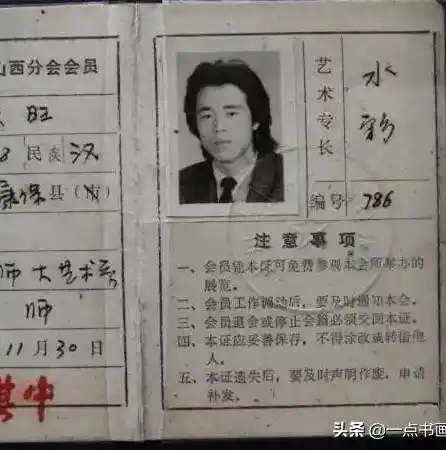 山西分会会员
旺
8 民族 汉
康保县(市)
师大艺术系
师
11月30日
其中
艺术专长 水彩
编号 786
注意事项
一、会员凭本证可免费参观本会所举办的
展览。
二、会员工作调动后,要及时通知本会。
三、会员退会或停止会籍必须交回本证。
四、本证应妥善保存,不得涂改或转借他
人。
五、本证遗失后,要及时声明作废,申请
补发。
头条 @一点书画